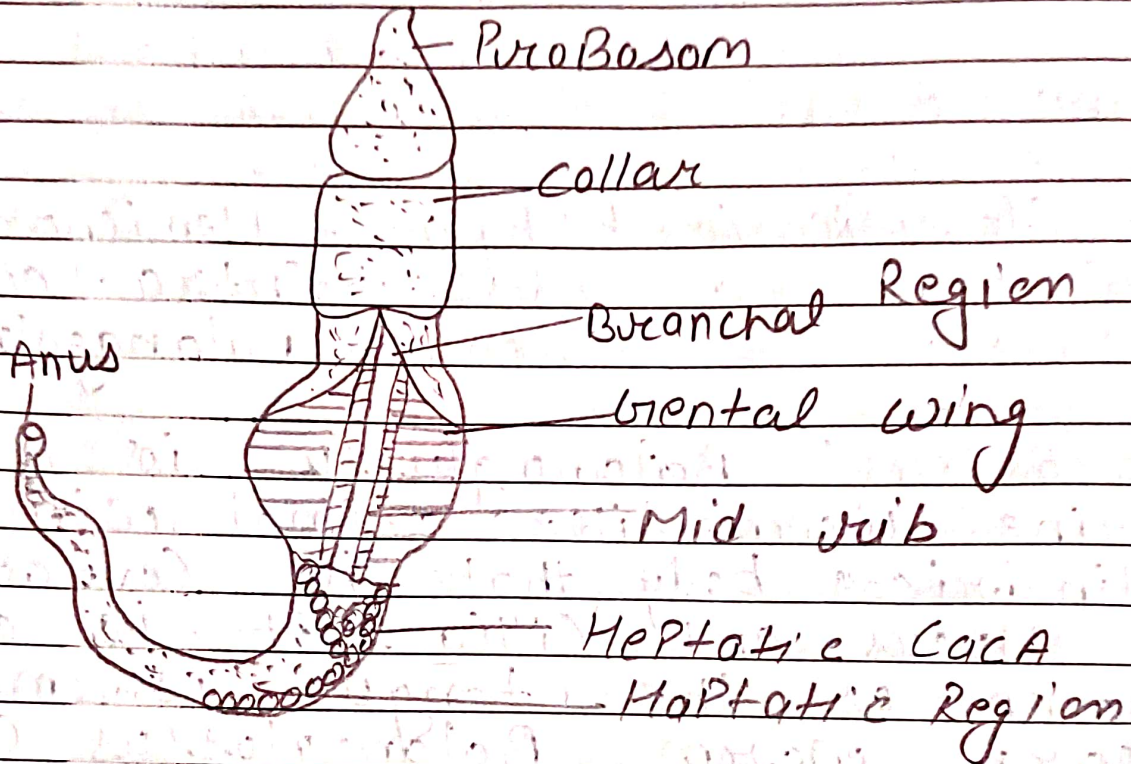 ProBosom
collar
Branchal Region
Anus
Gental wing
Mid rib
HePtatic CacA
HaPtatic Region